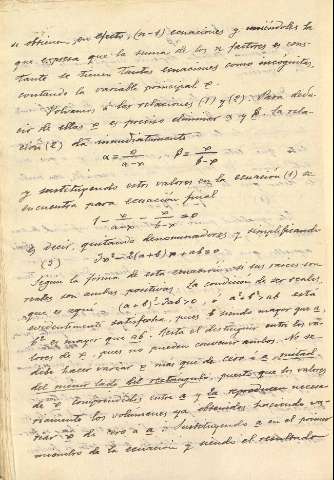 se obtienen, en efecto, (n-1) ecuaciones y uniéndoles la
que expresa que la suma de los n factores es cons-
tante se tienen tantas ecuaciones como incógnitas,
contando la variable principal x.
Volvamos a las relaciones (1) y (2). Para dedu-
cir de ellas x es preciso eliminar α y β. La rela-
ción (2) da inmediatamente
α = x/a-x β = x/b-x
y sustituyendo estos valores en la ecuación (1) se
encuentra para ecuación final
1 - x/a-x - x/b-x = 0
es decir, quitando denominadores y simplificando
(3) 3x²-2(a+b)x+ab=0
Según la forma de esta ecuación, si sus raices son
reales son ambas positivas. La condición de ser reales,
que es aquí (a+b)²-3ab>0, ó a²+b²>ab está
evidentemente satisfecha, pues b siendo mayor que a,
b² es mayor que ab. Resta el distinguir entre los va-
lores de x, pues no pueden convenir ambos. No se
debe hacer variar x más que de cero a a mitad
del menor lado del rectángulo, puesto que los valores
de x comprendidos entre a y b reproducen necesa-
riamente los volumenes ya obtenidos haciendo va-
riar x de cero a a. Sustituyendo a en el primer
miembro de la ecuación y siendo el resultado